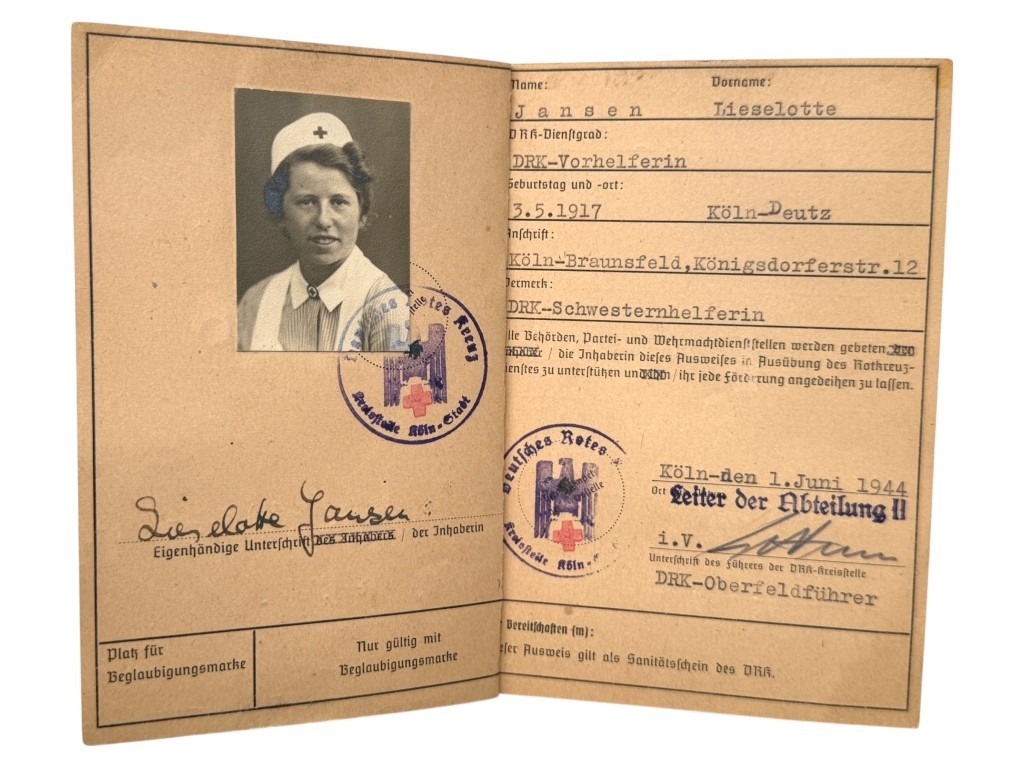 Deutsches Rotes Kreuz
Kreisstelle Köln-Stadt
Lieselotte Jansen
Eigenhändige Unterschrift des Inhabers / der Inhaberin
Platz für
Beglaubigungsmarke
Nur gültig mit
Beglaubigungsmarke
Name: Vorname:
Jansen Lieselotte
DRK-Dienstgrad:
DRK-Vorhelferin
Geburtstag und -ort:
3.5.1917 Köln-Deutz
Anschrift:
Köln-Braunsfeld,Königsdorferstr.12
Vermerk:
DRK-Schwesternhelferin
lle Behörden, Partei- und Wehrmachtdienststellen werden gebeten, den
/ die Inhaberin dieses Ausweises in Ausübung des Rotkreuz-
ienstes zu unterstützen und / ihr jede Förderung angedeihen zu lassen.
Deutsches Rotes
Kreisstelle Köln-
Köln-den 1.Juni 1944
Ort
Leiter der Abteilung II
i.V.
Unterschrift des Führers der DRK-Kreisstelle
DRK-Oberfeldführer
r Bereitschaften (m):
eser Ausweis gilt als Sanitätsschein des DRK.